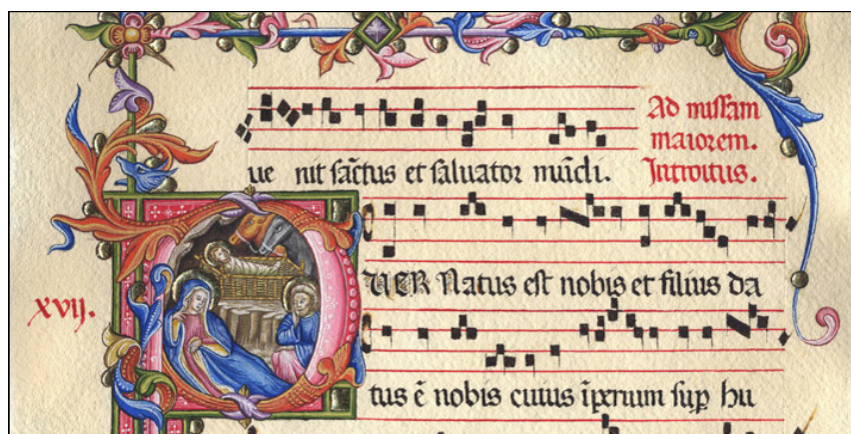 ue nit sāctus et saluator mūdi.
Ad missam
maiorem.
Introitus.
PUER Natus est nobis et filius da
xvij.
tus ē nobis cuius īꝑium suꝑ hu